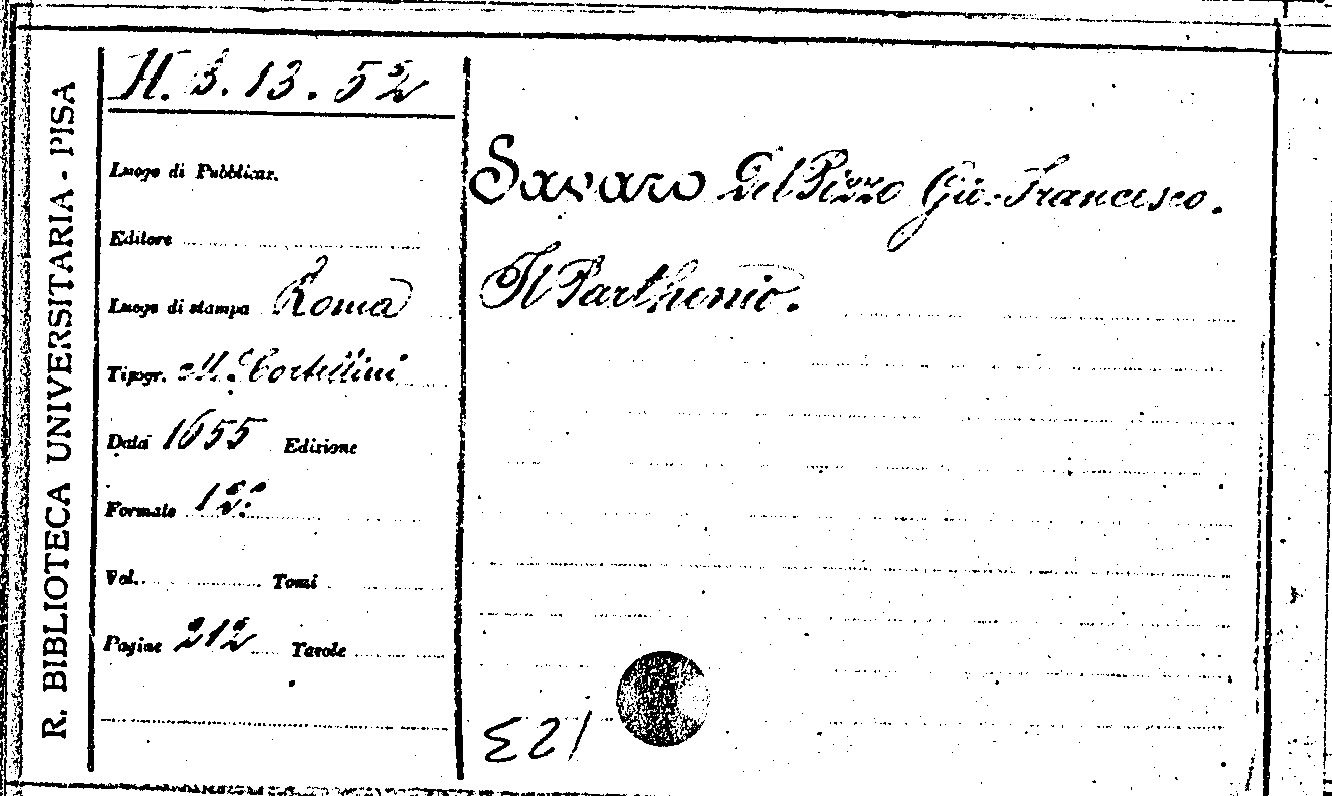 R. BIBLIOTECA UNIVERSITARIA - PISA
H. 3. 13. 52
Luogo di Pubblicaz.
Editore
Luogo di stampa Roma
Tipogr. M. Cortellini
Data 1655 Edizione
Formato 12º
Vol. Tomi
Pagine 212 Tavole
Savaro Del Pizzo Gio: Francesco.
Il Parthenio.